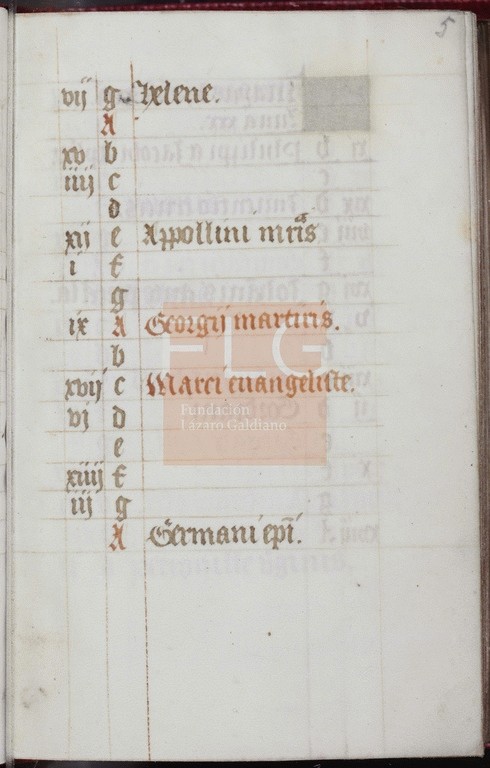 5
vij g helene.
A
xv b
iiij c
d
xij e Appollini mrīs
i f
g
ix A Georgij martiris.
b
xvij c Marci euangeliste.
vj d
e
xiiij f
iij g
A Germani epī.
FLG
Fundación
Lázaro Galdiano